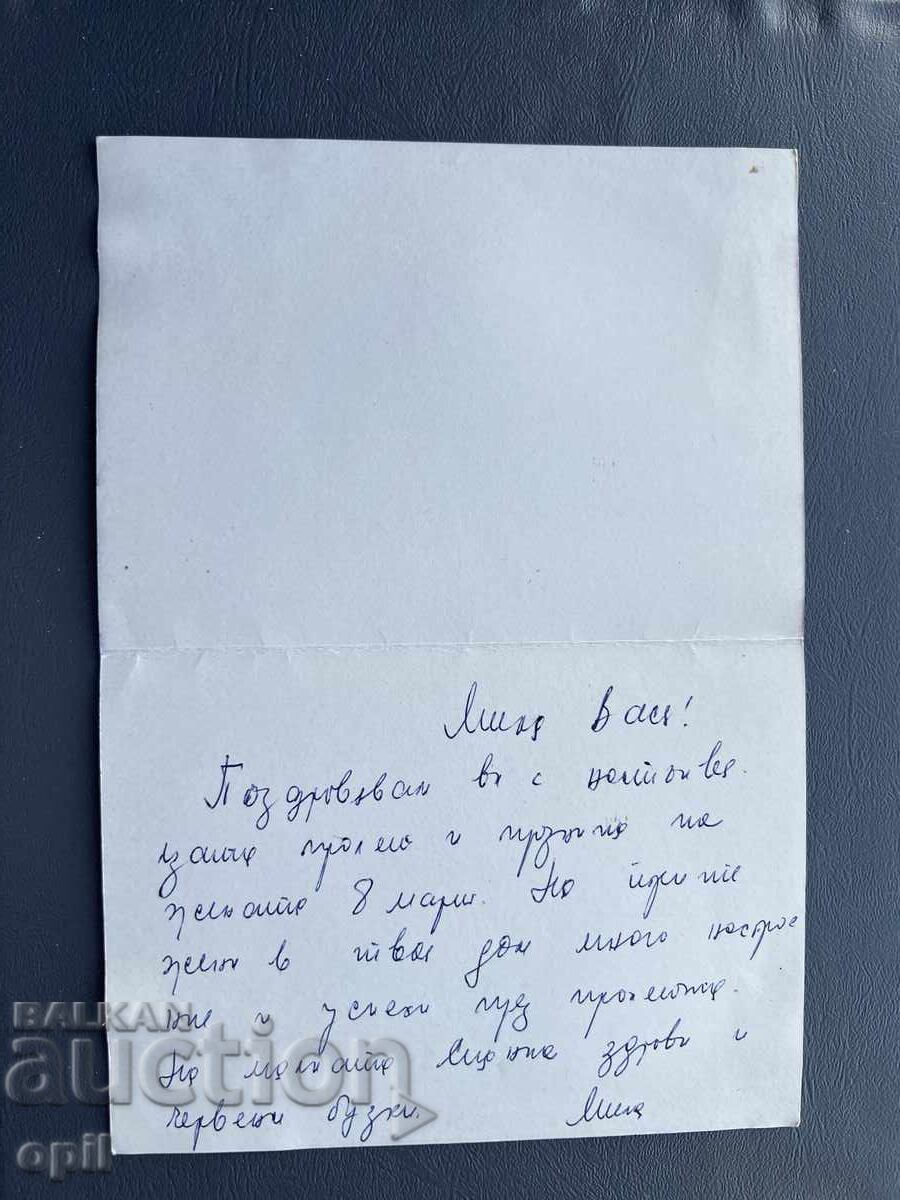 Мила Вася!
Поздравявам ви с настъпва-
щата пролет и празника на
жената 8 март. На трите
жени в твоя дом много настрое
ние и успехи през пролетта.
На малката здраве и
червени бузки. Мила
BALKAN
auction
opil